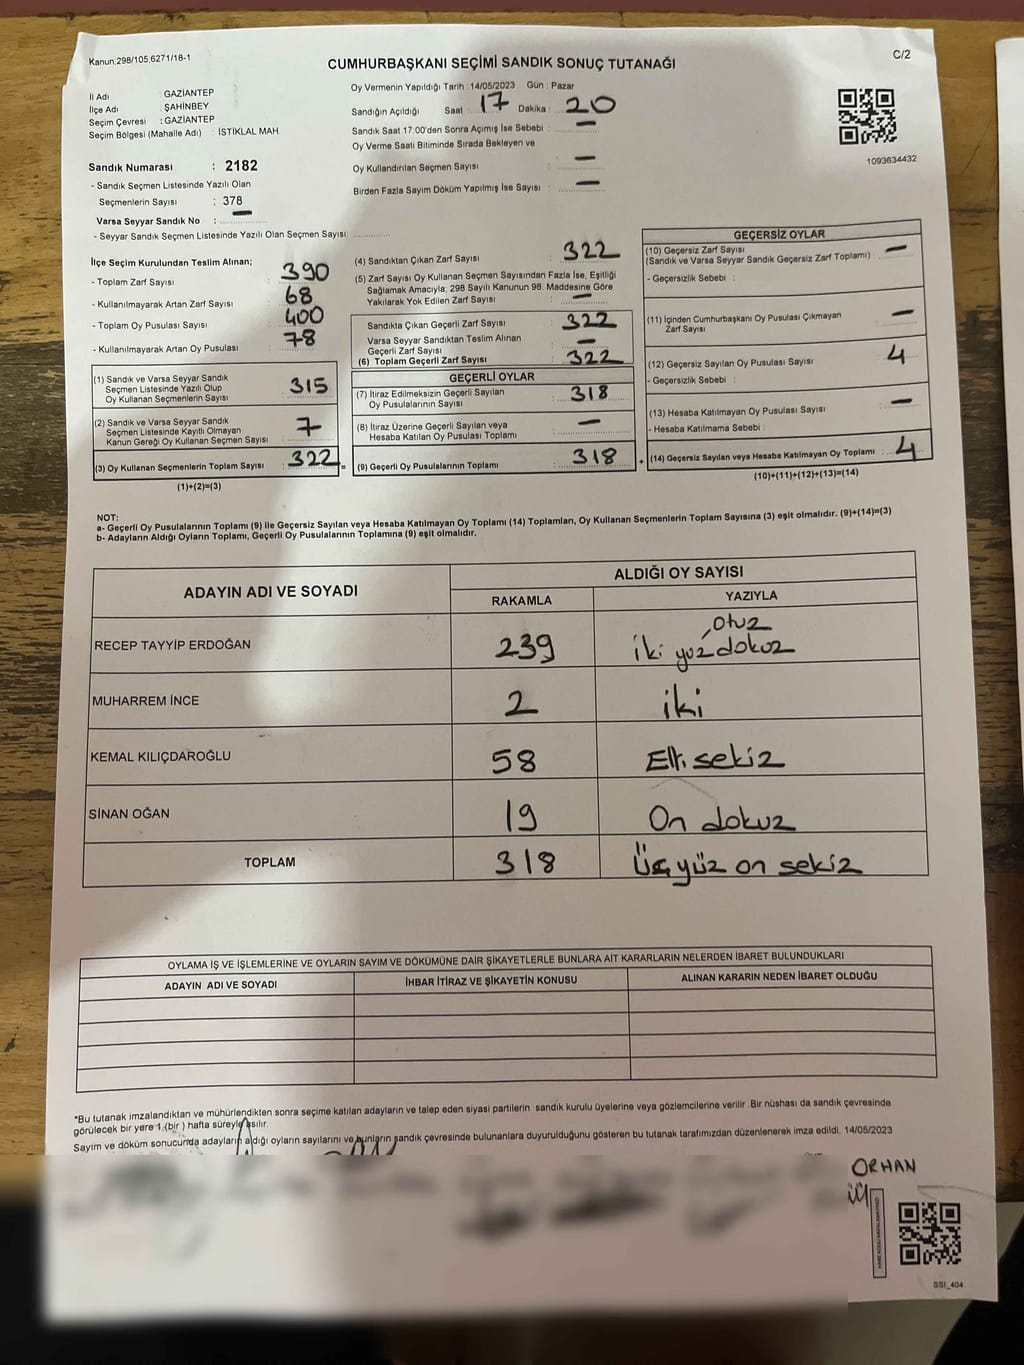 Kanun.298/105,6271/18-1
CUMHURBAŞKANI SEÇİMİ SANDIK SONUÇ TUTANAĞI
C/2
İl Adı : GAZİANTEP
İlçe Adı : ŞAHİNBEY
Seçim Çevresi : GAZİANTEP
Seçim Bölgesi (Mahalle Adı) : İSTİKLAL MAH.
Oy Vermenin Yapıldığı Tarih :14/05/2023 Gün : Pazar
Sandığın Açıldığı Saat : 17 Dakika : 20
Sandık Saat 17.00'den Sonra Açımış İse Sebebi : —
Oy Verme Saati Bitiminde Sırada Bekleyen ve
Oy Kullandırılan Seçmen Sayısı : —
Birden Fazla Sayım Döküm Yapılmış İse Sayısı : —
1093634432
Sandık Numarası : 2182
- Sandık Seçmen Listesinde Yazılı Olan
Seçmenlerin Sayısı : 378
Varsa Seyyar Sandık No : —
- Seyyar Sandık Seçmen Listesinde Yazılı Olan Seçmen Sayısı:
İlçe Seçim Kurulundan Teslim Alınan;
- Toplam Zarf Sayısı : 390
- Kullanılmayarak Artan Zarf Sayısı : 68
- Toplam Oy Pusulası Sayısı : 400
- Kullanılmayarak Artan Oy Pusulası : 78
(1) Sandık ve Varsa Seyyar Sandık
Seçmen Listesinde Yazılı Olup
Oy Kullanan Seçmenlerin Sayısı : 315
(2) Sandık ve Varsa Seyyar Sandık
Seçmen Listesinde Kayıtlı Olmayan
Kanun Gereği Oy Kullanan Seçmen Sayısı : 7
(3) Oy Kullanan Seçmenlerin Toplam Sayısı : 322 =
(1)+(2)=(3)
(4) Sandıktan Çıkan Zarf Sayısı : 322
(5) Zarf Sayısı Oy Kullanan Seçmen Sayısından Fazla İse, Eşitliği
Sağlamak Amacıyla, 298 Sayılı Kanunun 98. Maddesine Göre
Yakılarak Yok Edilen Zarf Sayısı : —
Sandıkta Çıkan Geçerli Zarf Sayısı : 322
Varsa Seyyar Sandıktan Teslim Alınan
Geçerli Zarf Sayısı : —
(6) Toplam Geçerli Zarf Sayısı : 322
GEÇERLİ OYLAR
(7) İtiraz Edilmeksizin Geçerli Sayılan
Oy Pusulalarının Sayısı : 318
(8) İtiraz Üzerine Geçerli Sayılan veya
Hesaba Katılan Oy Pusulası Toplamı : —
(9) Geçerli Oy Pusulalarının Toplamı : 318 +
GEÇERSİZ OYLAR
(10) Geçersiz Zarf Sayısı : —
(Sandık ve Varsa Seyyar Sandık Geçersiz Zarf Toplamı)
- Geçersizlik Sebebi :
(11) İçinden Cumhurbaşkanı Oy Pusulası Çıkmayan
Zarf Sayısı : —
(12) Geçersiz Sayılan Oy Pusulası Sayısı : 4
- Geçersizlik Sebebi :
(13) Hesaba Katılmayan Oy Pusulası Sayısı : —
- Hesaba Katılmama Sebebi :
(14) Geçersiz Sayılan veya Hesaba Katılmayan Oy Toplamı : 4
(10)+(11)+(12)+(13)=(14)
NOT:
a- Geçerli Oy Pusulalarının Toplamı (9) ile Geçersiz Sayılan veya Hesaba Katılmayan Oy Toplamı (14) Toplamları, Oy Kullanan Seçmenlerin Toplam Sayısına (3) eşit olmalıdır. (9)+(14)=(3)
b- Adayların Aldığı Oyların Toplamı, Geçerli Oy Pusulalarının Toplamına (9) eşit olmalıdır.
ADAYIN ADI VE SOYADI
ALDIĞI OY SAYISI
RAKAMLA YAZIYLA
RECEP TAYYİP ERDOĞAN 239 iki yüz otuz dokuz
MUHARREM İNCE 2 iki
KEMAL KILIÇDAROĞLU 58 Elli sekiz
SİNAN OĞAN 19 On dokuz
TOPLAM 318 Üç yüz on sekiz
OYLAMA İŞ VE İŞLEMLERİNE VE OYLARIN SAYIM VE DÖKÜMÜNE DAİR ŞİKAYETLERLE BUNLARA AİT KARARLARIN NELERDEN İBARET BULUNDUKLARI
ADAYIN ADI VE SOYADI İHBAR İTİRAZ VE ŞİKAYETİN KONUSU ALINAN KARARIN NEDEN İBARET OLDUĞU
*Bu tutanak imzalandıktan ve mühürlendikten sonra seçime katılan adayların ve talep eden siyasi partilerin sandık kurulu üyelerine veya gözlemcilerine verilir .Bir nüshası da sandık çevresinde
görülecek bir yere 1.(bir ) hafta süreyle asılır.
Sayım ve döküm sonucunda adayların aldığı oyların sayılarını ve bunların sandık çevresinde bulunanlara duyurulduğunu gösteren bu tutanak tarafımızdan düzenlenerek imza edildi. 14/05/2023
ORHAN
SSI_404